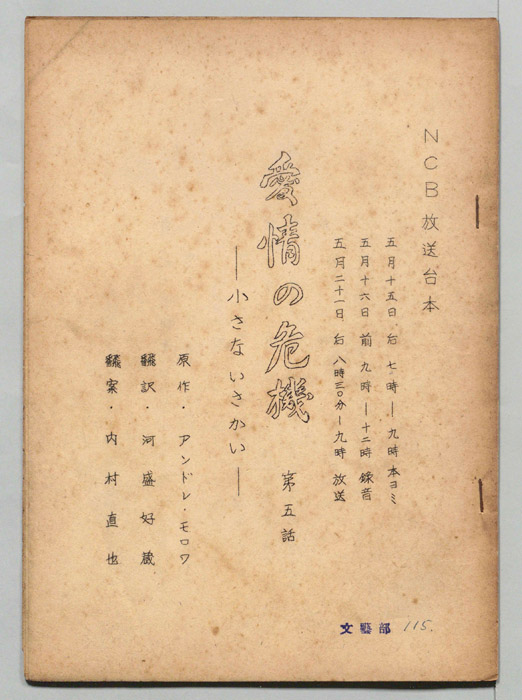 NCB放送台本
五月十五日 后 七時—九時 本ヨミ
五月十六日 前 九時—十二時 録音
五月二十一日 后 八時三〇分—九時 放送
愛情の危機 第五話
—小さないさかい—
原作・アンドレ・モロワ
飜訳・河盛好蔵
飜案・内村直也
文藝部 115.